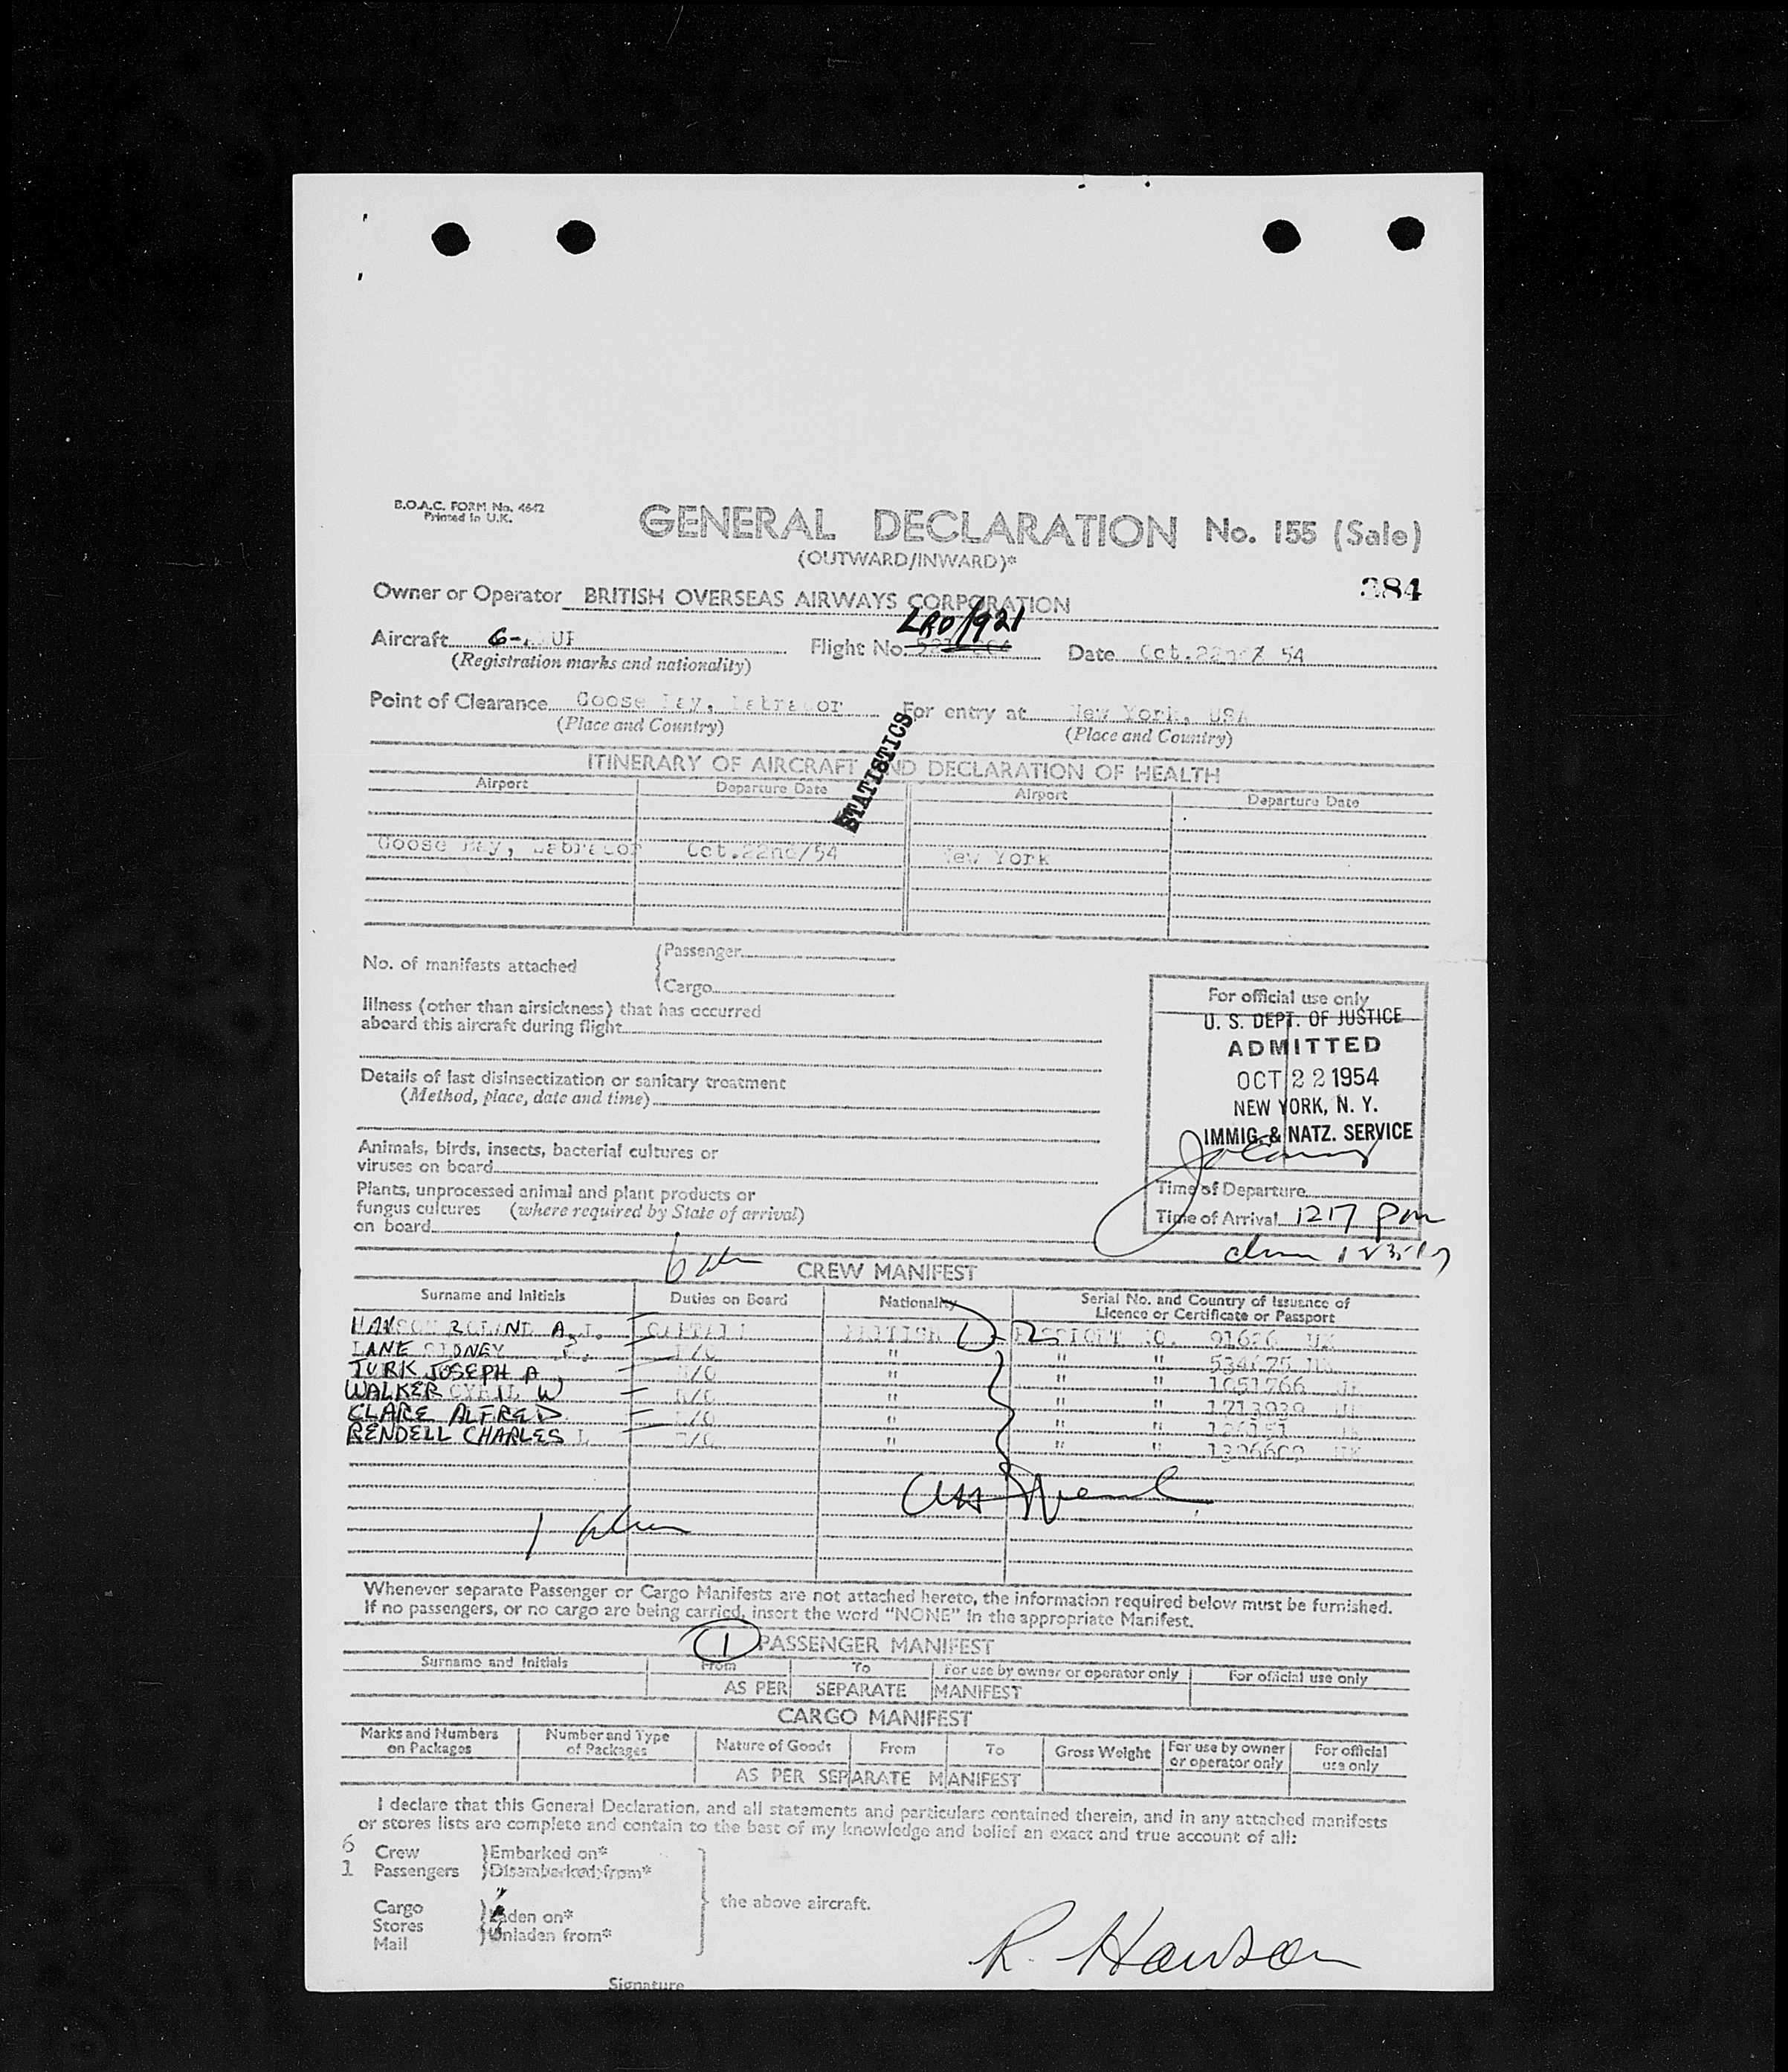 B.O.A.C. FORM No. 4642
Printed in U.K.
GENERAL DECLARATION No. 155 (Sale)
(OUTWARD/INWARD)*
384
Owner or Operator BRITISH OVERSEAS AIRWAYS CORPORATION
LRO/921
Aircraft G- Flight No. Date Oct.22nd 54
(Registration marks and nationality)
Point of Clearance Goose Bay, Labrador For entry at New York, USA
(Place and Country) (Place and Country)
STATISTICS
ITINERARY OF AIRCRAFT AND DECLARATION OF HEALTH
Airport Departure Date Airport Departure Date
Goose Bay, Labrador Oct.22nd/54 New York
No. of manifests attached
Passenger
Cargo
Illness (other than airsickness) that has occurred
aboard this aircraft during flight
Details of last disinsectization or sanitary treatment
(Method, place, date and time)
Animals, birds, insects, bacterial cultures or
viruses on board
Plants, unprocessed animal and plant products or
fungus cultures (where required by State of arrival)
on board
For official use only
U. S. DEPT. OF JUSTICE
ADMITTED
OCT 22 1954
NEW YORK, N. Y.
IMMIG. & NATZ. SERVICE
Time of Departure
Time of Arrival 1217 pm
CREW MANIFEST
Surname and Initials Duties on Board Nationality Serial No. and Country of Issuance of
Licence or Certificate or Passport
ROLAND A. CAPTAIN BRITISH PASSPORT NO. UK
LANE SIDNEY " " "
TURK JOSEPH A " " "
WALKER CYRIL W " " "
CLARE ALFRED " " "
RENDELL CHARLES L " " "
Whenever separate Passenger or Cargo Manifests are not attached hereto, the information required below must be furnished.
If no passengers, or no cargo are being carried, insert the word "NONE" in the appropriate Manifest.
1 PASSENGER MANIFEST
Surname and Initials From To For use by owner or operator only For official use only
AS PER SEPARATE MANIFEST
CARGO MANIFEST
Marks and Numbers on Packages Number and Type of Packages Nature of Goods From To Gross Weight For use by owner or operator only For official use only
AS PER SEPARATE MANIFEST
I declare that this General Declaration, and all statements and particulars contained therein, and in any attached manifests
or stores lists are complete and contain to the best of my knowledge and belief an exact and true account of all:
6 Crew Embarked on*
1 Passengers Disembarked from*
the above aircraft.
Cargo Laden on*
Stores Unladen from*
Mail
R. Hanson
Signature